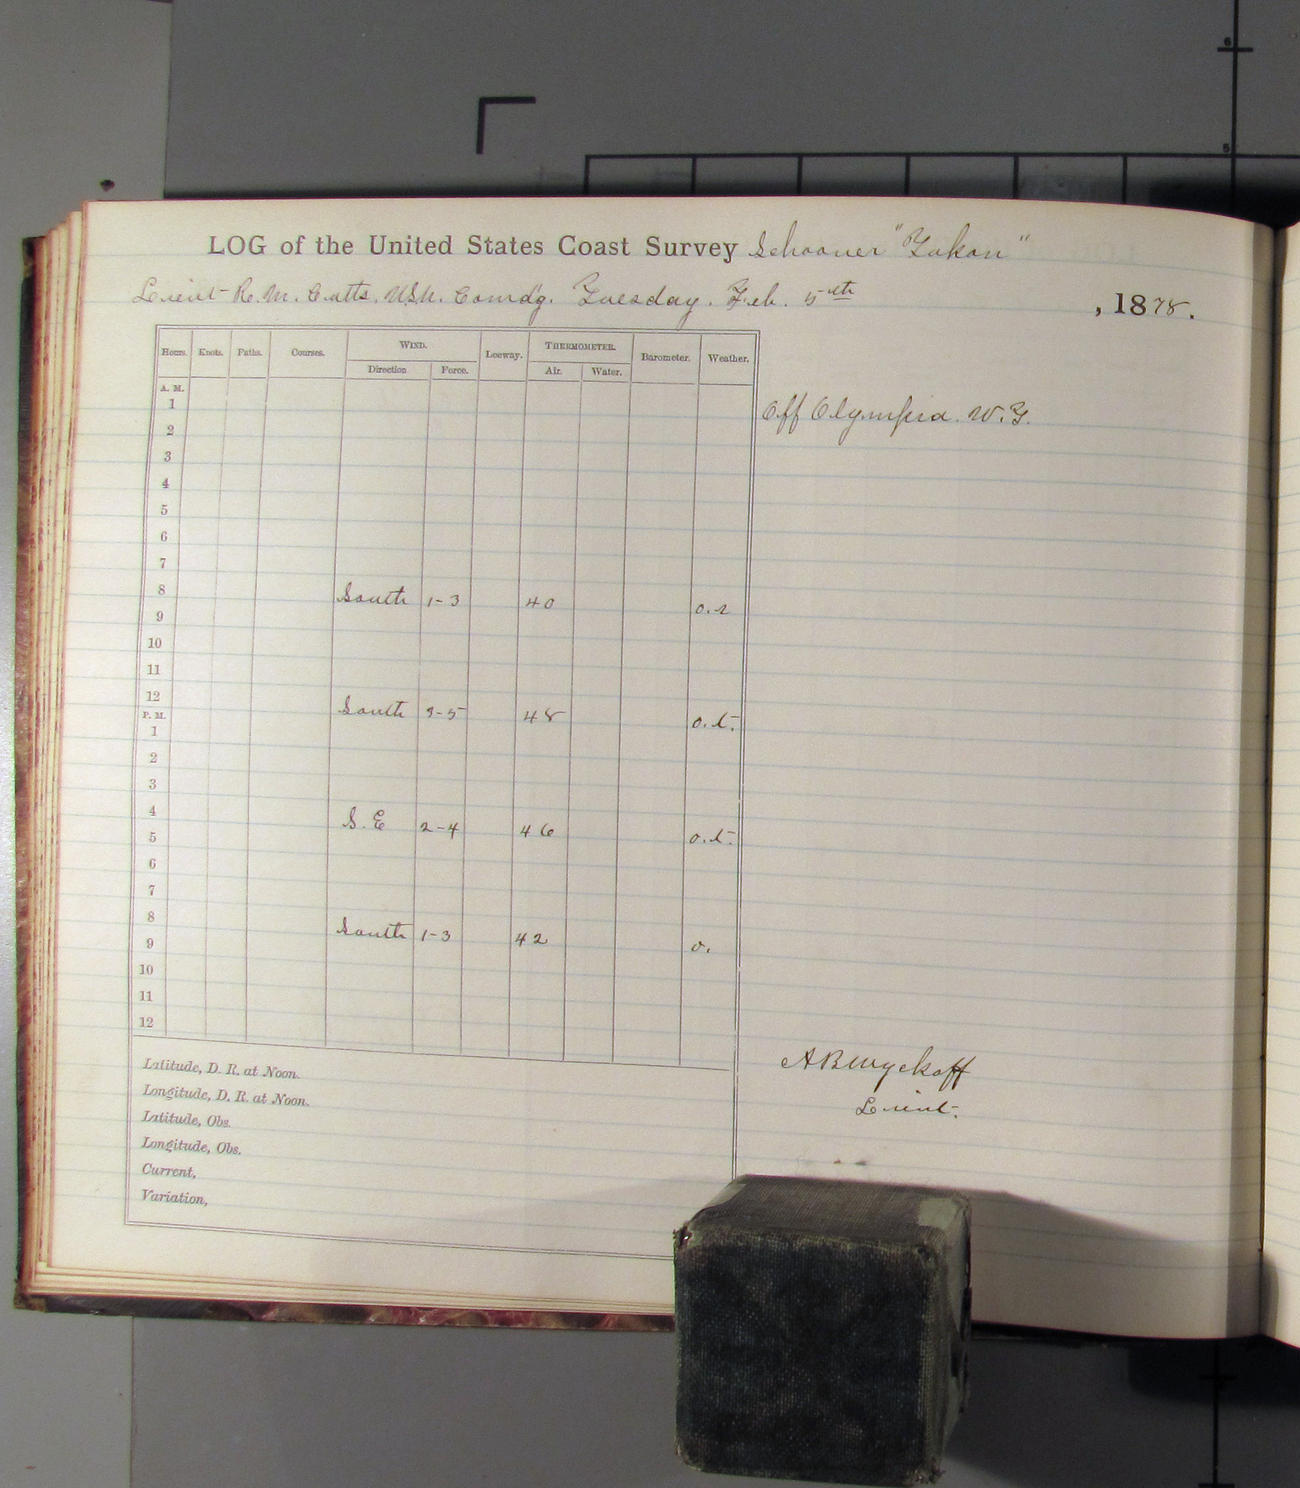 LOG of the United States Coast Survey Schooner "Yukon"
Lieut R. M. Cutts. USN. Comdg. Tuesday. Feb. 5th, 1878.
Hours. Knots. Faths. Courses. WIND. Leeway. THERMOMETER. Barometer. Weather.
Direction Force. Air. Water.
A. M.
1 Off Olympia. W. T.
2
3
4
5
6
7
8 South 1-3 40 o.r
9
10
11
12 South 3-5 48 o.t.
P. M.
1
2
3
4 S. E 2-4 46 o.t.
5
6
7
8 South 1-3 42 o.
9
10
11
12
Latitude, D. R. at Noon.
Longitude, D. R. at Noon. A B Wyckoff
Latitude, Obs. Lieut.
Longitude, Obs.
Current,
Variation,